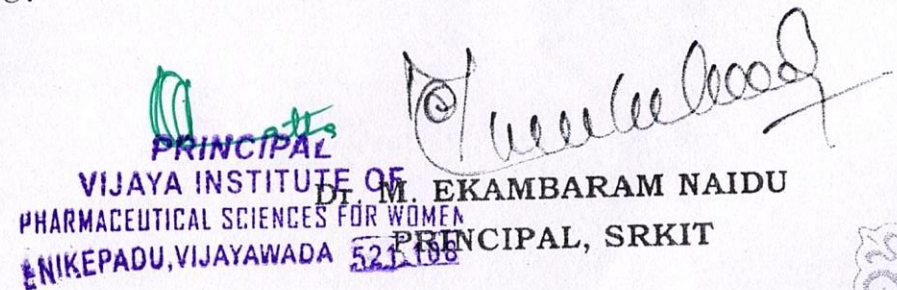 PRINCIPAL
VIJAYA INSTITUTE OF
PHARMACEUTICAL SCIENCES FOR WOMEN
ENIKEPADU, VIJAYAWADA 521 108
Dr. M. EKAMBARAM NAIDU
PRINCIPAL, SRKIT